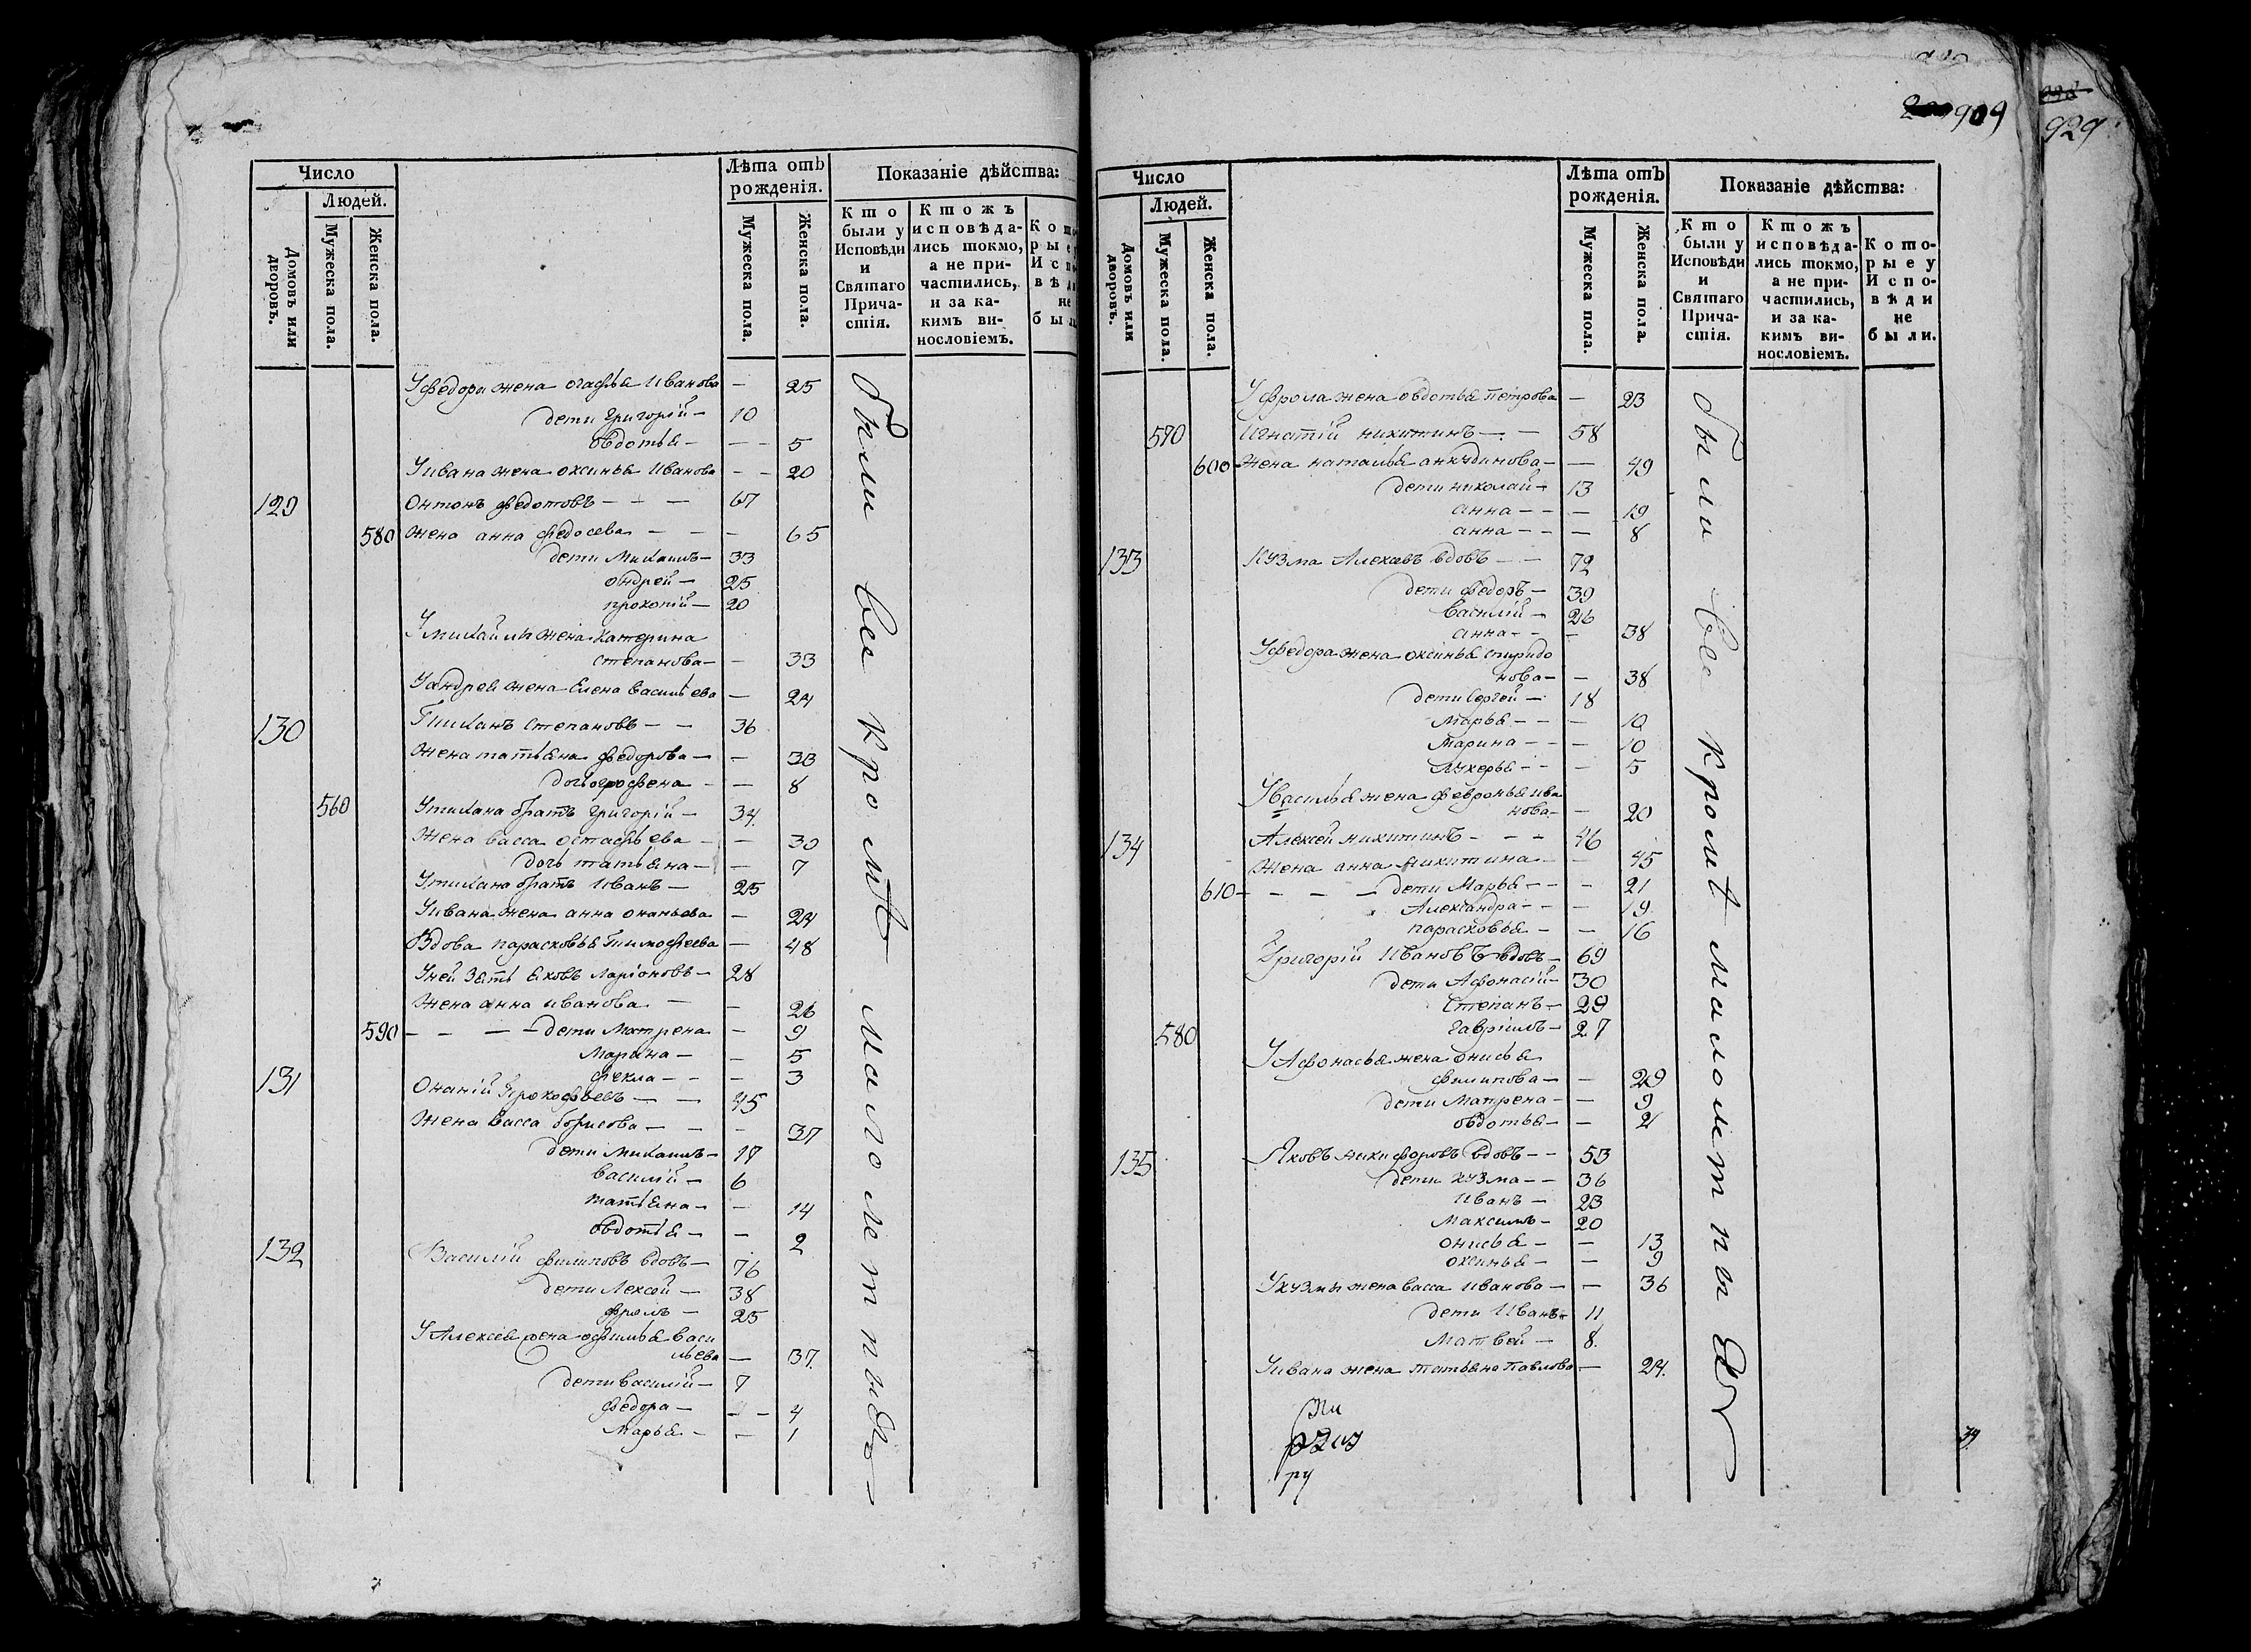 Число
Людей.
Домовъ или дворовъ.
Мужеска пола.
Женска пола.
Лѣта отъ рожденія.
Мужеска пола.
Женска пола.
Показаніе дѣйства:
Кто были у Исповѣди и Святаго Причастія.
Ктожъ исповѣдались токмо, а не причастились, и за какимъ винословіемъ.
Уфедора жена огафья Иванова — 25
дети григорій — 10
овдотья — — 5
Уивана жена оксинья Иванова — — 20
129 Онтонъ федотовъ — — — 67
580 жена анна федосеева — — — 65
дети Михаилъ — 33
ондрей — 25
прокопій — 20
Умихаилы жена катерина
степанова — — 33
Уандрея жена Елена Васильева — 24
130 Тиханъ степановъ — — 36
жена татьяна федорова — — 33
дочь огрофена — — 8
560 Утихана братъ григорій — 34
жена васса остафьева — — 30
дочь татьяна — — 7
Утихана братъ Иванъ — 25
Уивана жена анна ананьева — 24
Вдова парасковья Тимофеева — 48
Уней зять яковъ ларіоновъ — 28
жена анна иванова — — 26
590 — — — дети Матрена — 9
Марина — — 5
фекла — — — 3
131 Онаній Прокофьевъ — — 45
жена васса борисова — — — 37
дети михаилъ — 17
василій — 6
татьяна — — 14
овдотья — — 2
132 Василій филиповъ вдовъ — 76
дети Лексей — 38
фролъ — 25
УАлексея жена офимья васи
льева — 37.
дети василій — 7
федора — — — 4
Марья — — 1
были все кроме малолетныхъ
909
929
Число
Людей.
Домовъ или дворовъ.
Мужеска пола.
Женска пола.
Лѣта отъ рожденія.
Мужеска пола.
Женска пола.
Показаніе дѣйства:
Кто были у Исповѣди и Святаго Причастія.
Ктожъ исповѣдались токмо, а не причастились, и за какимъ винословіемъ.
Которые у Исповѣди не были.
Уфрола жена овдотья петрова — 23
570 Игнатій никитинъ — — 58
600 жена наталья анкудинова — — 49
дети николай — 13
анна — — — 19
анна — — — 8
133 Кузма Алексевъ вдовъ — — 72
дети федоръ — 39
василій — 26
анна — — — 38
Уфедора жена оксинья спиридо
нова — — 38
дети Сергей — 18
Марья — — — 10
Марина — — — 10
лукерья — — — 5
Увасилья жена февронья ива
нова — — 20
134 Алексей никитинъ — — — 46
жена анна никитина — — 45
610 — — — — дети Марья — — — 21
Александра — — — 19
парасковья — — 16
Григорій Ивановъ вдовъ — 69
дети Афонасій — 30
Степанъ — 29
580 гавріилъ — 27
УАфонасья жена онисья
филипова — — 29
дети Матрена — — 9
овдотья — — 2
135 Яковъ никифоровъ вдовъ — — 53
дети кузма — — 36
Иванъ — 23
Максимъ — 20
онисья — — 13
оксинья — — 9
Укузмы жена васса иванова — — 36
дети Иванъ — 11
Матвей — 8.
Уивана жена татьяна павлова — 24.
были все кроме малолетныхъ